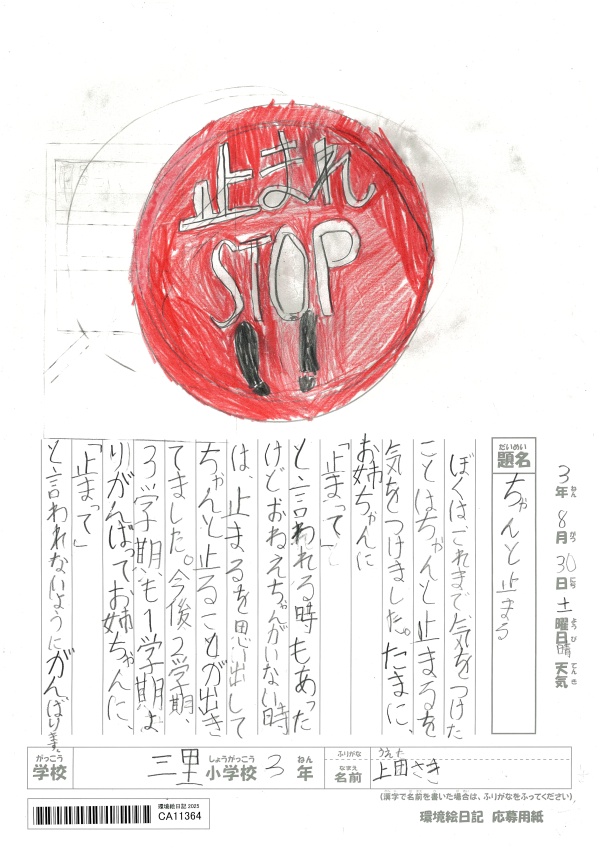 止まれ
STOP
3年 8月 30日 土曜日 晴 天気
ねん がつ にち ようび てんき
だいめい
題名
ちゃんと止まる
ぼくはこれまで気をつけた
ことはちゃんと止まるを
気をつけました。たまに、
お姉ちゃんに
「止まって」
と言われる時もあった
けどおねえちゃんがいない時
は、止まるを思出して
ちゃんと止ることが出き
てました。今後2学期、
3学期も1学期よ
りがんばってお姉ちゃんに、
「止まって」
と言われないようにがんばります。
がっこう
学校
三里小学校 3年
しょうがっこう ねん
ふりがな うえた
なまえ
名前 上田さき
(漢字で名前を書いた場合は、ふりがなをふってください)
環境絵日記 2025
CA11364
環境絵日記 応募用紙